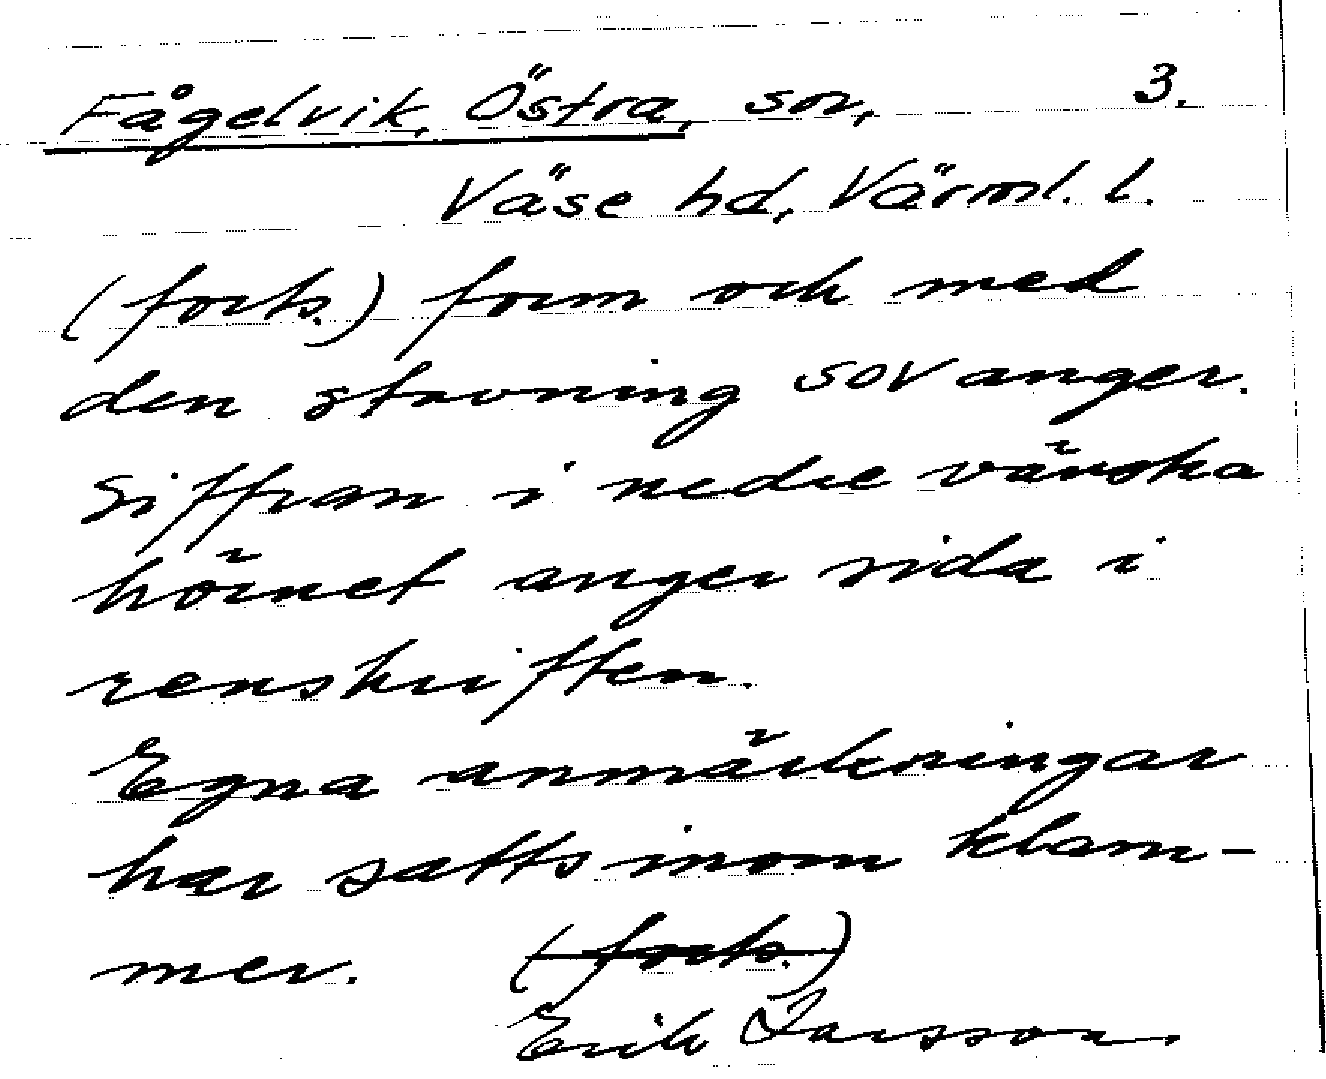 Fågelvik, Östra, sov, 3.
Väse hd, Värml. l.
(forts.) form och med
den stavning SOV anger.
Siffran i nedre vänska
hörnet anger sida i
renskriften.
Egna anmärkningar
har satts inom klam-
mer. (forts.)
Erik Larsson.